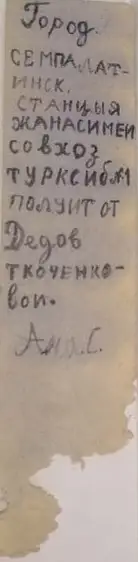 Город.
СЕМПАЛАТ-
ИНСК.
СТАНЦЫЯ
ЖАНАСИМЕЙ
СОВХОЗ
ТУРКСИБМ
ПОЛУИТ ОТ
Дедов
ТКОЧЕНКО-
вои.